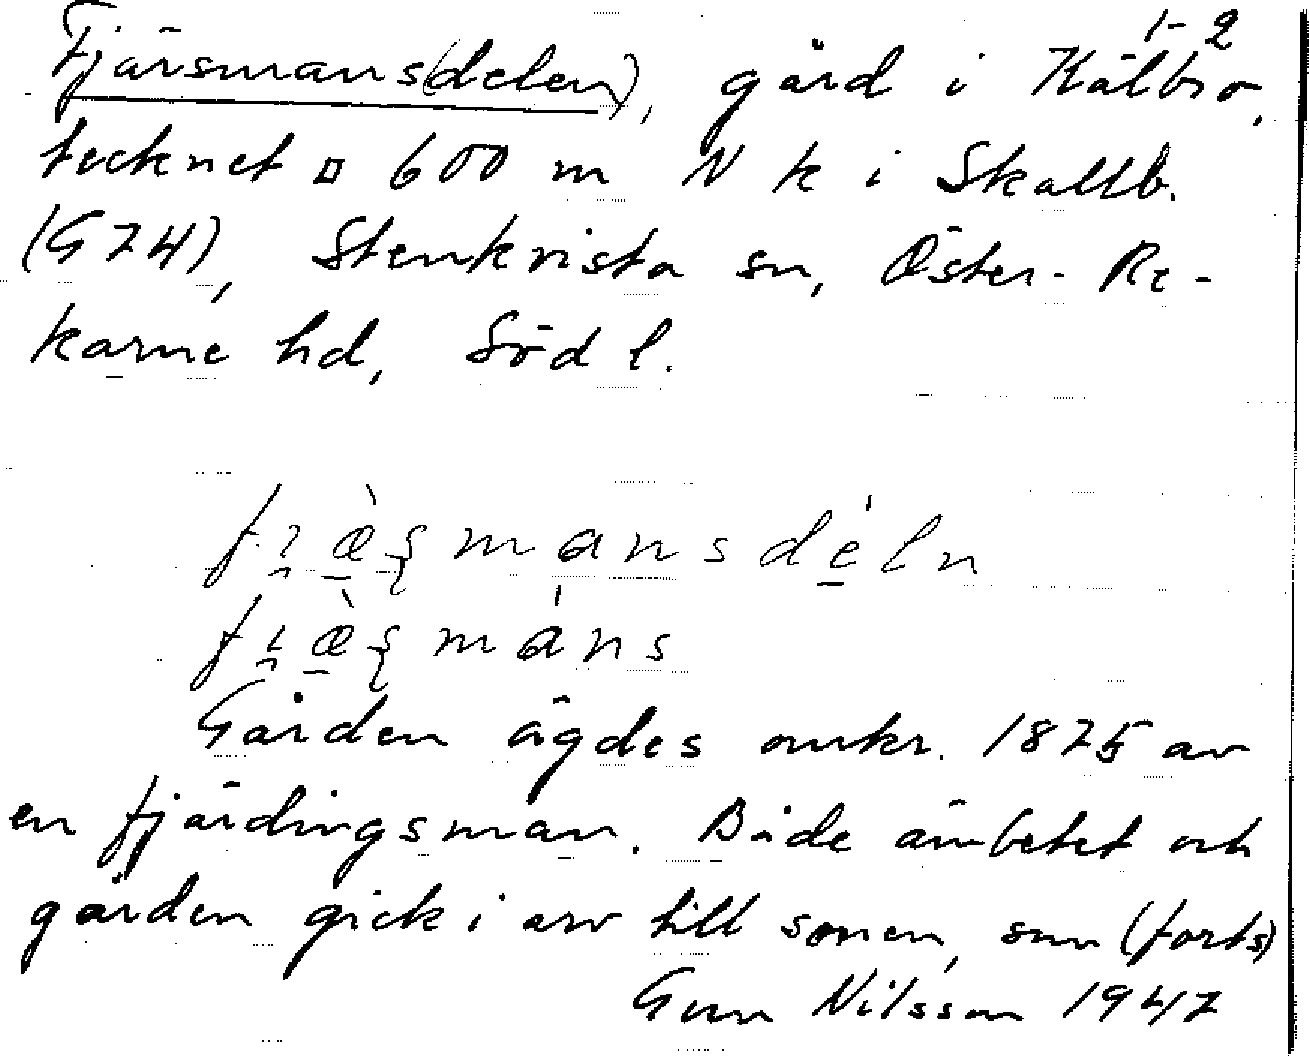 Fjärsmans(delen), gård i Kälbro 1-2,
tecknet □ 600 m N k i Skallb.
(G74), Stenkvista sn, Öster-Re-
karne hd, Söd l.
Gården ägdes omkr. 1875 av
en fjärdingsman. Både ämbetet och
gården gick i arv till sonen, som (forts)
Gun Nilsson 1947